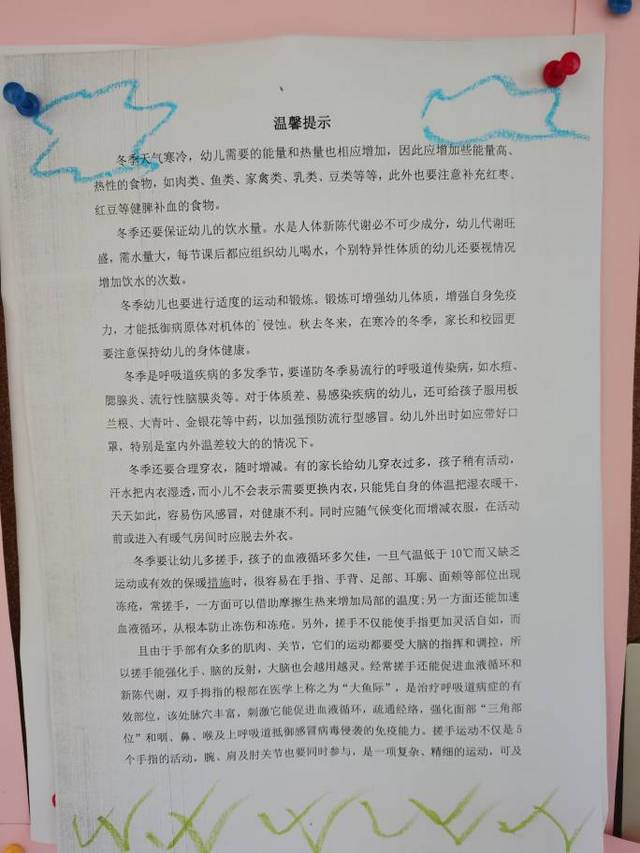 温馨提示
冬季天气寒冷，幼儿需要的能量和热量也相应增加，因此应增加些能量高、
热性的食物，如肉类、鱼类、家禽类、乳类、豆类等等，此外也要注意补充红枣、
红豆等健脾补血的食物。
冬季还要保证幼儿的饮水量。水是人体新陈代谢必不可少成分，幼儿代谢旺
盛，需水量大，每节课后都应组织幼儿喝水，个别特异性体质的幼儿还要视情况
增加饮水的次数。
冬季幼儿也要进行适度的运动和锻炼。锻炼可增强幼儿体质，增强自身免疫
力，才能抵御病原体对机体的侵蚀。秋去冬来，在寒冷的冬季，家长和校园更
要注意保持幼儿的身体健康。
冬季是呼吸道疾病的多发季节，要谨防冬季易流行的呼吸道传染病，如水痘、
腮腺炎、流行性脑膜炎等。对于体质差、易感染疾病的幼儿，还可给孩子服用板
兰根、大青叶、金银花等中药，以加强预防流行型感冒。幼儿外出时如应带好口
罩，特别是室内外温差较大的的情况下。
冬季还要合理穿衣，随时增减。有的家长给幼儿穿衣过多，孩子稍有活动，
汗水把内衣湿透，而小儿不会表示需要更换内衣，只能凭自身的体温把湿衣暖干，
天天如此，容易伤风感冒，对健康不利。同时应随气候变化而增减衣服，在活动
前或进入有暖气房间时应脱去外衣。
冬季要让幼儿多搓手，孩子的血液循环多欠佳，一旦气温低于10℃而又缺乏
运动或有效的保暖措施时，很容易在手指、手背、足部、耳廓、面颊等部位出现
冻疮，常搓手，一方面可以借助摩擦生热来增加局部的温度;另一方面还能加速
血液循环，从根本防止冻伤和冻疮。另外，搓手不仅能使手指更加灵活自如，而
且由于手部有众多的肌肉、关节，它们的运动都要受大脑的指挥和调控，所
以搓手能强化手、脑的反射，大脑也会越用越灵。经常搓手还能促进血液循环和
新陈代谢，双手拇指的根部在医学上称之为“大鱼际”，是治疗呼吸道病症的有
效部位，该处脉穴丰富，刺激它能促进血液循环，疏通经络，强化面部“三角部
位”和咽、鼻、喉及上呼吸道抵御感冒病毒侵袭的免疫能力。搓手运动不仅是5
个手指的活动，腕、肩及肘关节也要同时参与，是一项复杂、精细的运动，可及